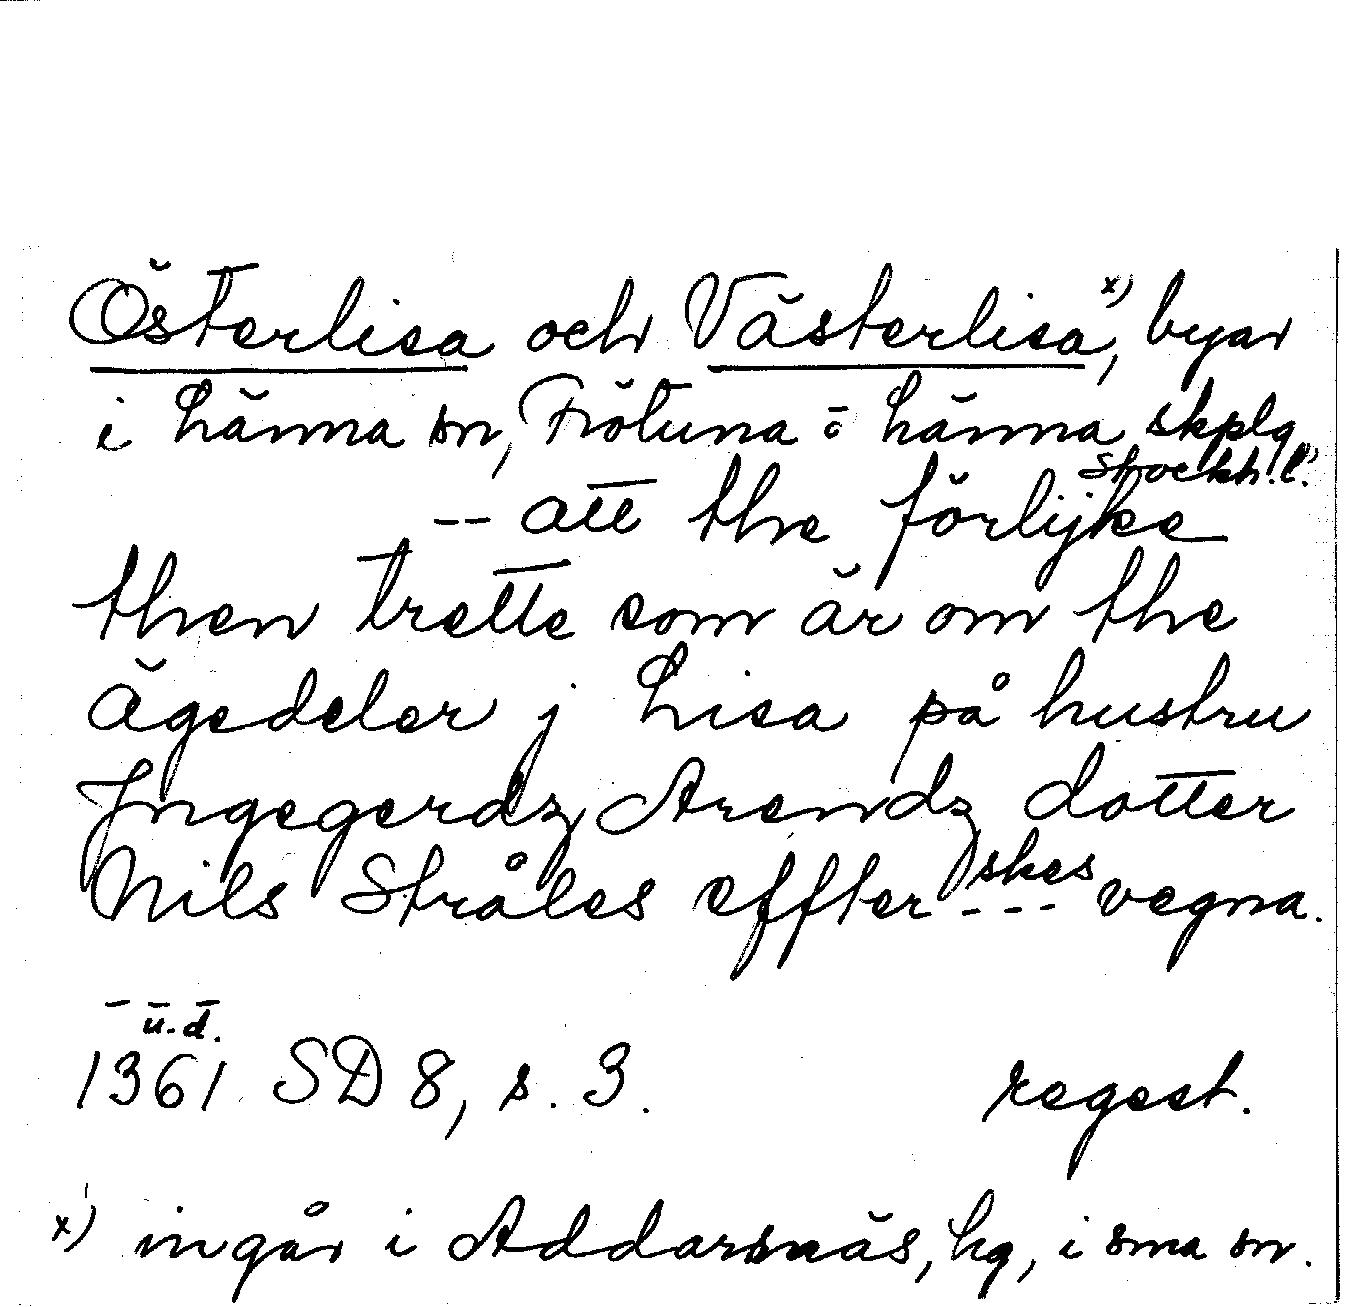 Österlisa och Västerlisa x), byar
i Länna sn, Frötuna o Länna skplg
Stockh. l.
-- att the förlijke
then trette som är om the
ägedeler j Lisa på hustru
Jngegerdz Arendz dotter
Nils Stråles effter---skes vegna.
u.d.
1361 SD 8, s. 3. regest.
x) ingår i Addarsnäs, hg, i sma sn.